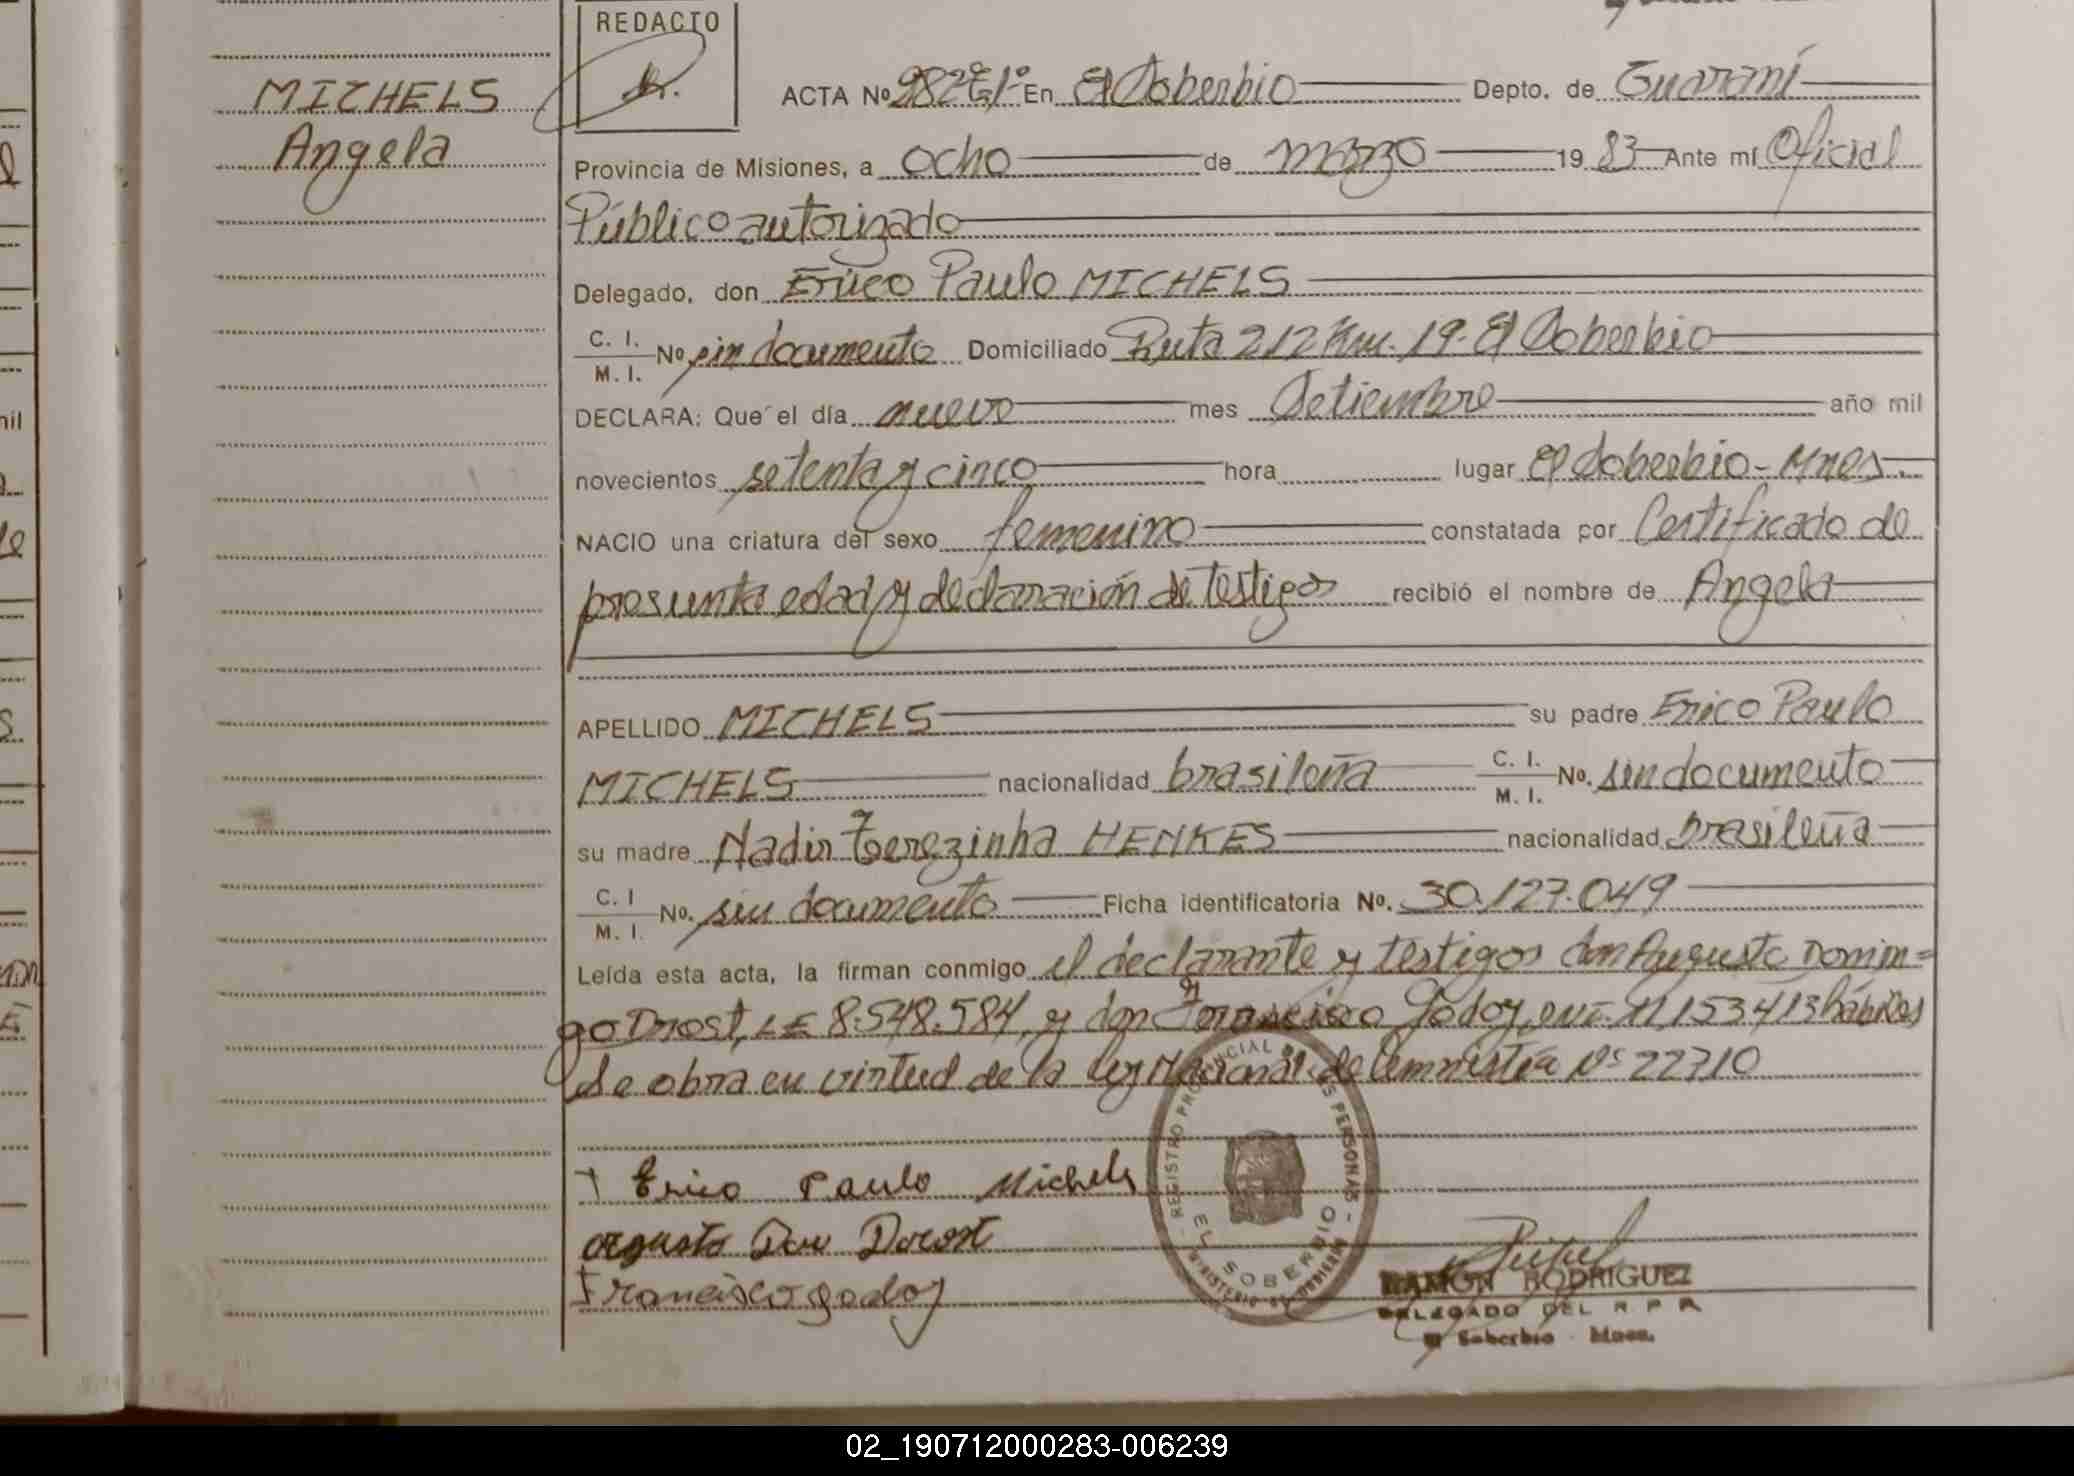 REDACTO
MICHELS
Angela
ACTA Nº 982 Tº1º En El Soberbio Depto. de Guaraní
Provincia de Misiones, a ocho de marzo 1983 Ante mí Oficial
Público autorizado
Delegado, don Erico Paulo MICHELS
C. I.
M. I. Nº sin documento Domiciliado Ruta 212 Km. 19- El Soberbio
DECLARA: Que el día nueve mes Setiembre año mil
novecientos setenta y cinco hora lugar El Soberbio - Mnes.
NACIO una criatura del sexo femenino constatada por Certificado de
presunta edad y declaración de testigos recibió el nombre de Angela
APELLIDO MICHELS su padre Erico Paulo
MICHELS nacionalidad brasileña C. I. M. I. Nº. sin documento
su madre Nadir Terezinha HENKES nacionalidad brasileña
C. I M. I. Nº. sin documento Ficha identificatoria Nº. 30.127.049
Leída esta acta, la firman conmigo el declarante y testigos don Augusto Domin=
go Drost, LE 8.548.584, y don Francisco Godoy, DNI. 11153413 hábiles
Se obra en virtud de la ley Nacional de Amnistía Nº 22710
Erico Paulo Michels
Drost
Francisco godoy
REGISTRO PROVINCIAL DE LAS PERSONAS
EL SOBERBIO
MINISTERIO DE GOBIERNO
RAMON RODRIGUEZ
DELEGADO DEL R P P
El Soberbio - Mnes.
02_190712000283-006239